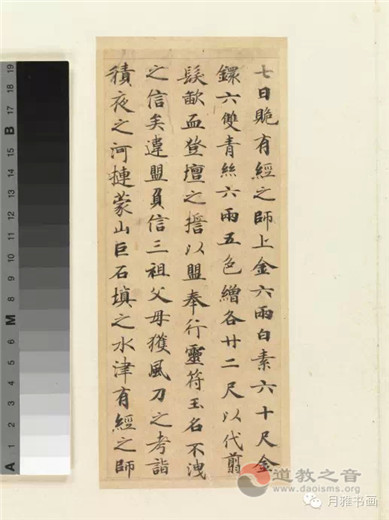 七日䞈有經之師上金六兩白素六十尺金
鐶六雙青絲六兩五色繒各廿二尺以代翦
髮歃血登壇之擔以盟奉行靈符玉名不洩
之信矣違盟負信三祖父母獲風刀之考詣
積夜之河摙蒙山巨石填之水津有經之師
A 1 2 3 4 5 6 M 8 9 10 11 12 13 14 15 B 17 18 19
道教之音
www.daoisms.org
月雅书画